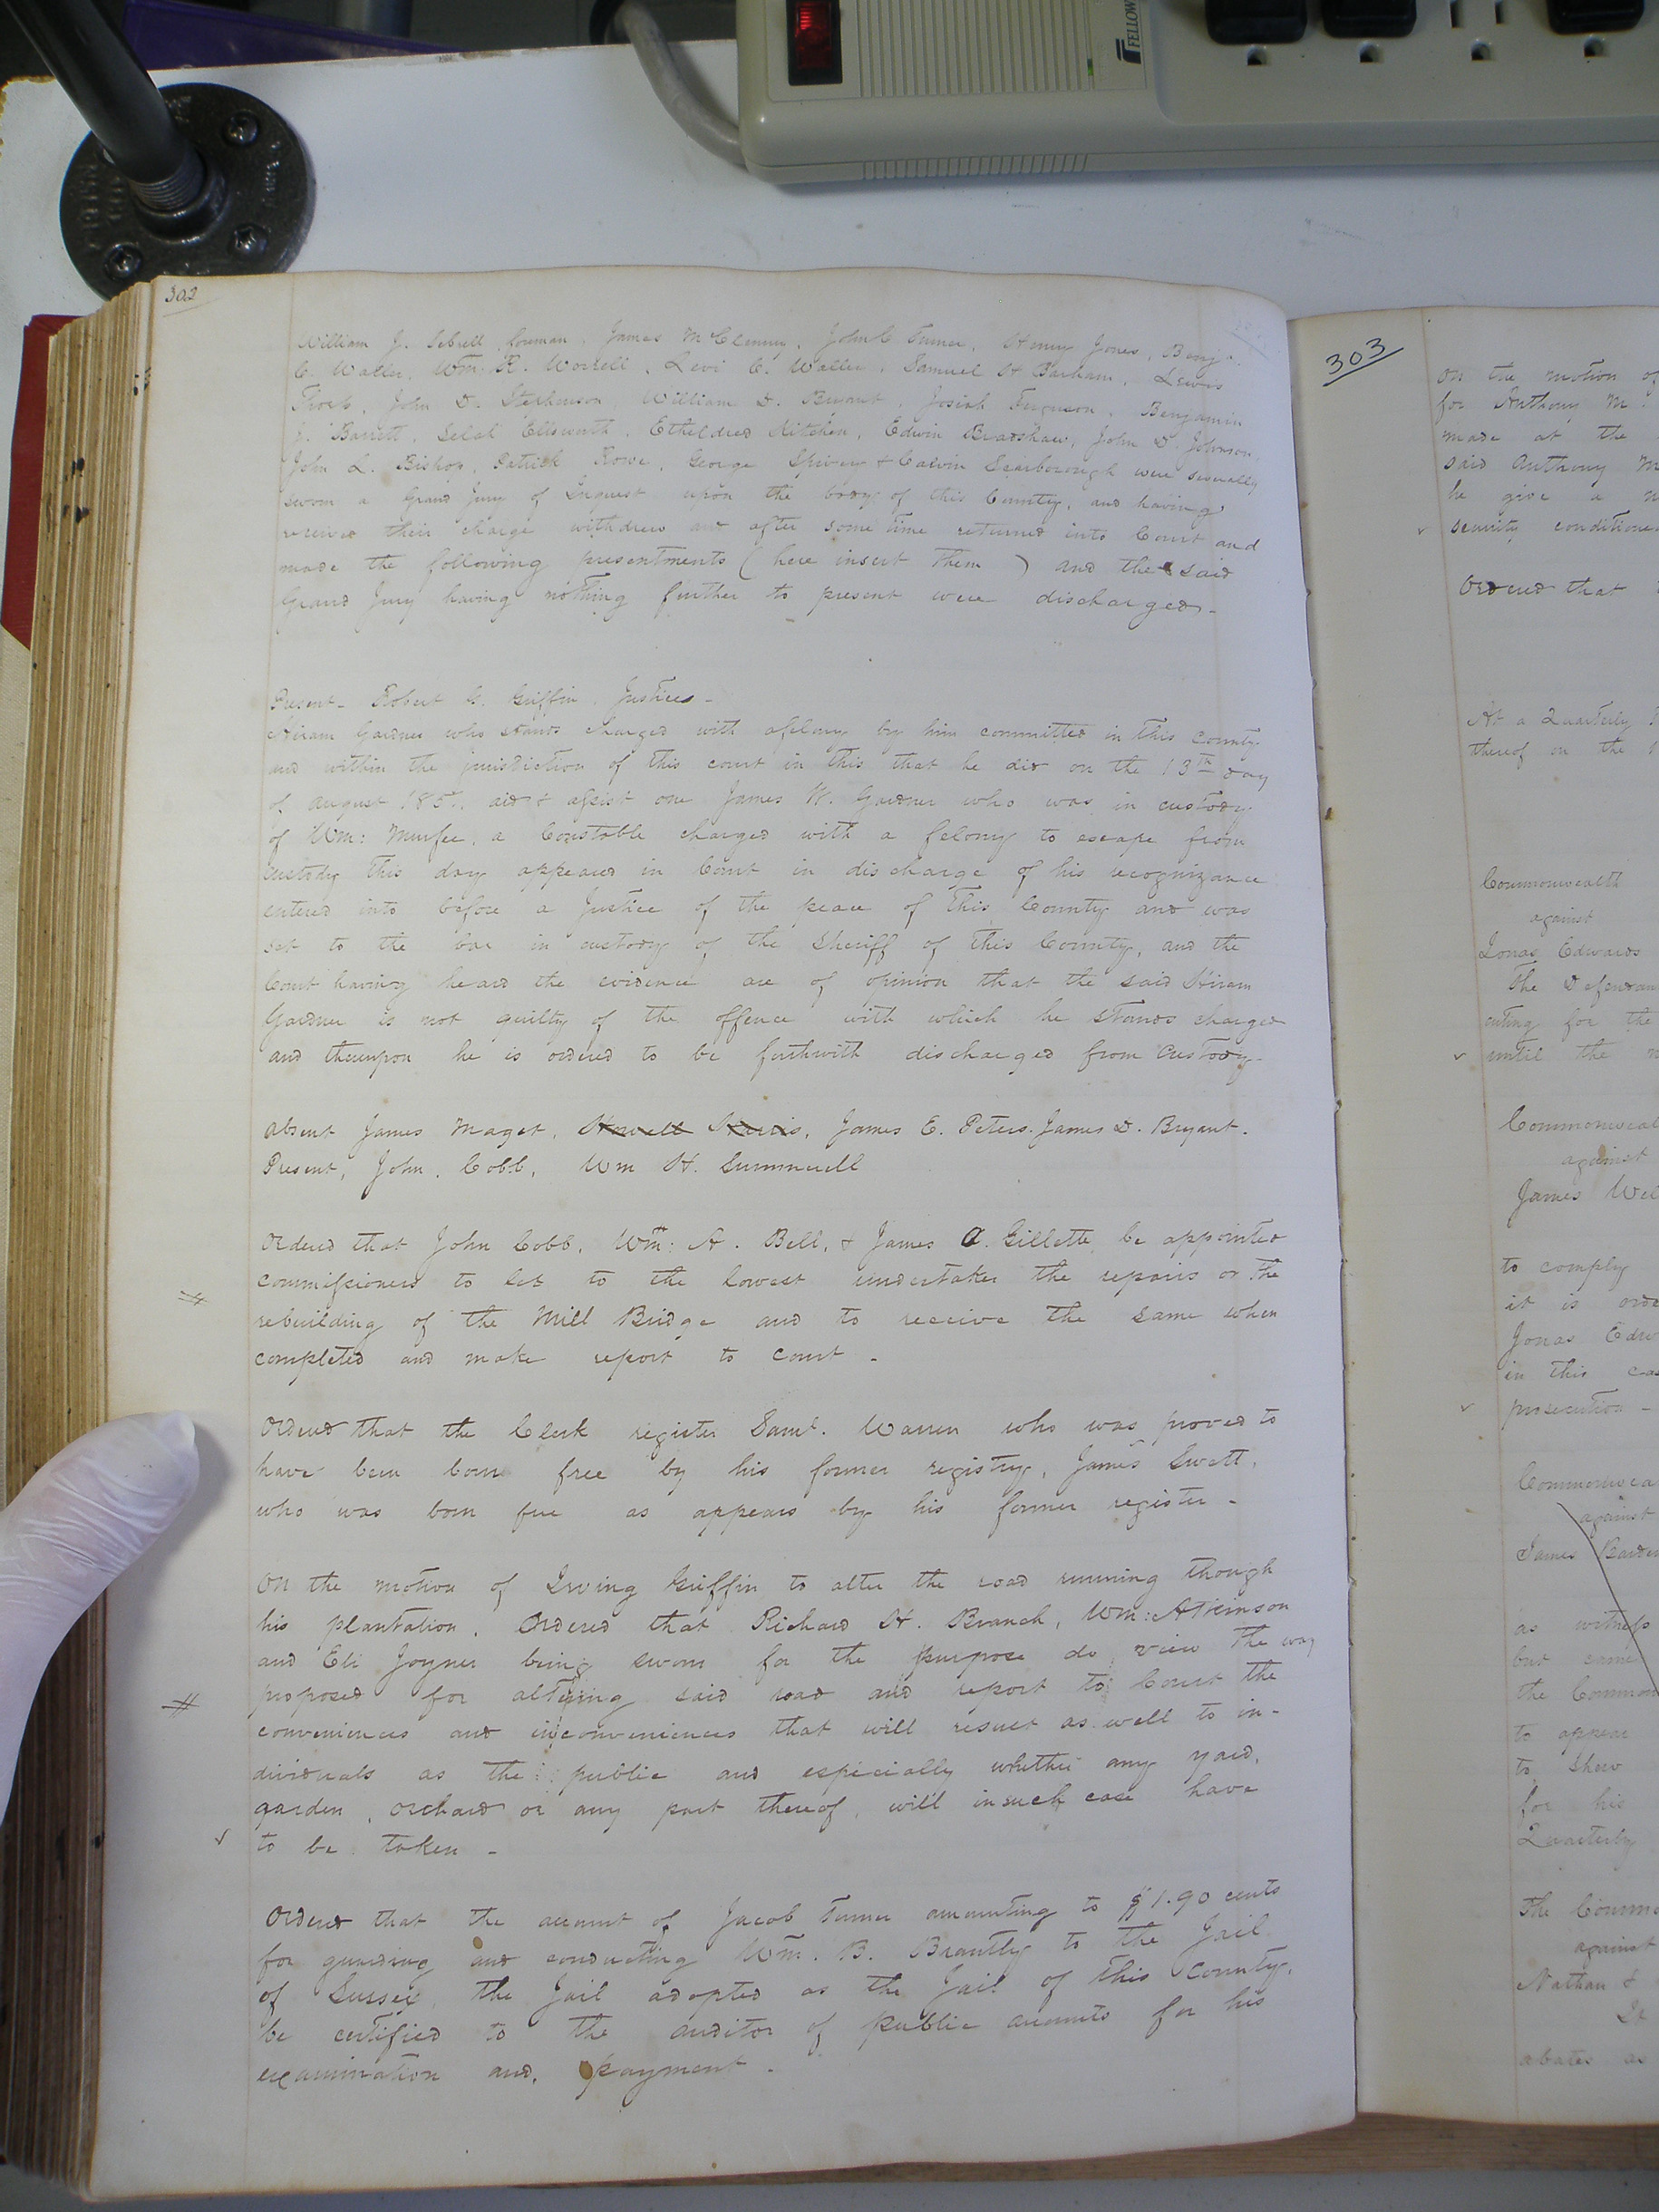 FELLOW
302
William J. Sebrell foreman, James McClenny, John C Turner, Henry Jones, Benj.
C. Waller, Wm. R. Worrell, Levi C. Waller, Samuel H Barham, Lewis
Thorp, John D. Stephenson, William D. Bryant, Josiah Ferguson, Benjamin
J. Barrett, Selah Ellsworth, Etheldred Kitchen, Edwin Bradshaw, John D. Johnson,
John L. Bishop, Patrick Rowe, George Spivey & Calvin Scarborough were severally
sworn a Grand Jury of Inquest upon the body of this County, and having
received their charge withdrew and after some time returned into Court and
made the following presentments (here insert them ) and the said
Grand Jury having nothing further to present were discharged -
Present - Robert G. Griffin, Justices -
Hiram Gardner who stands charged with a felony by him committed in this County
and within the jurisdiction of this court in this that he did on the 13th day
of August 185 aid & assist one James W. Gardner who was in custody
of Wm: Murfee, a Constable charged with a felony to escape from
custody this day appeared in Court in discharge of his recognizance
entered into before a Justice of the peace of this County and was
set to the bar in custody of the Sheriff of this County, and the
Court having heard the evidence are of opinion that the said Hiram
Gardner is not guilty of the offence with which he stands charged
and thereupon he is ordered to be forthwith discharged from custody -
Absent James Maget, Howell Harris, James E. Peters. James D. Bryant.
Present, John. Cobb, Wm H. Summerell
Ordered that John Cobb, Wm: H. Bell, & James A. Gillette be appointed
commissioners to let to the lowest undertaker the repairs or the
rebuilding of the Mill Bridge and to receive the same when
completed and make report to court -
Ordered that the Clerk register Saml. Warren who was proved to
have been born free by his former registry, James Swett,
who was born free as appears by his former register -
On the motion of Irving Griffin to alter the road running though
his plantation. Ordered that Richard H. Branch, Wm: Atkinson
and Eli Joyner being sworn for the purpose do view the way
proposed for altering said road and report to Court the
conveniences and inconveniences that will result as well to in-
dividuals as the public and especially whether any yard,
garden, orchard or any part thereof, will in such case have
to be taken -
Ordered that the account of Jacob Turner amounting to $1.90 cents
for guarding and conducting Wm. B. Brantly to the Jail
of Sussex, the Jail adopted as the Jail of this County,
be certified to the auditor of public accounts for his
examination and, payment -
303
On the motion of
for Anthony M.
made at the
said Anthony M
he give a
security conditione
Ordered that
At a Quarterly
thereof on the
Commonwealth
against
Jonas Edwards
The Defendan
cuting for the
until the
Commonweal
against
James Wel
to comply
it is orde
Jonas Edw
in this ca
prosecution -
Commonwea
against
James Barden
as witness
but came
the Common
to appear
to shew
for his
Quarterly
The Commo
against
Nathan
abates as